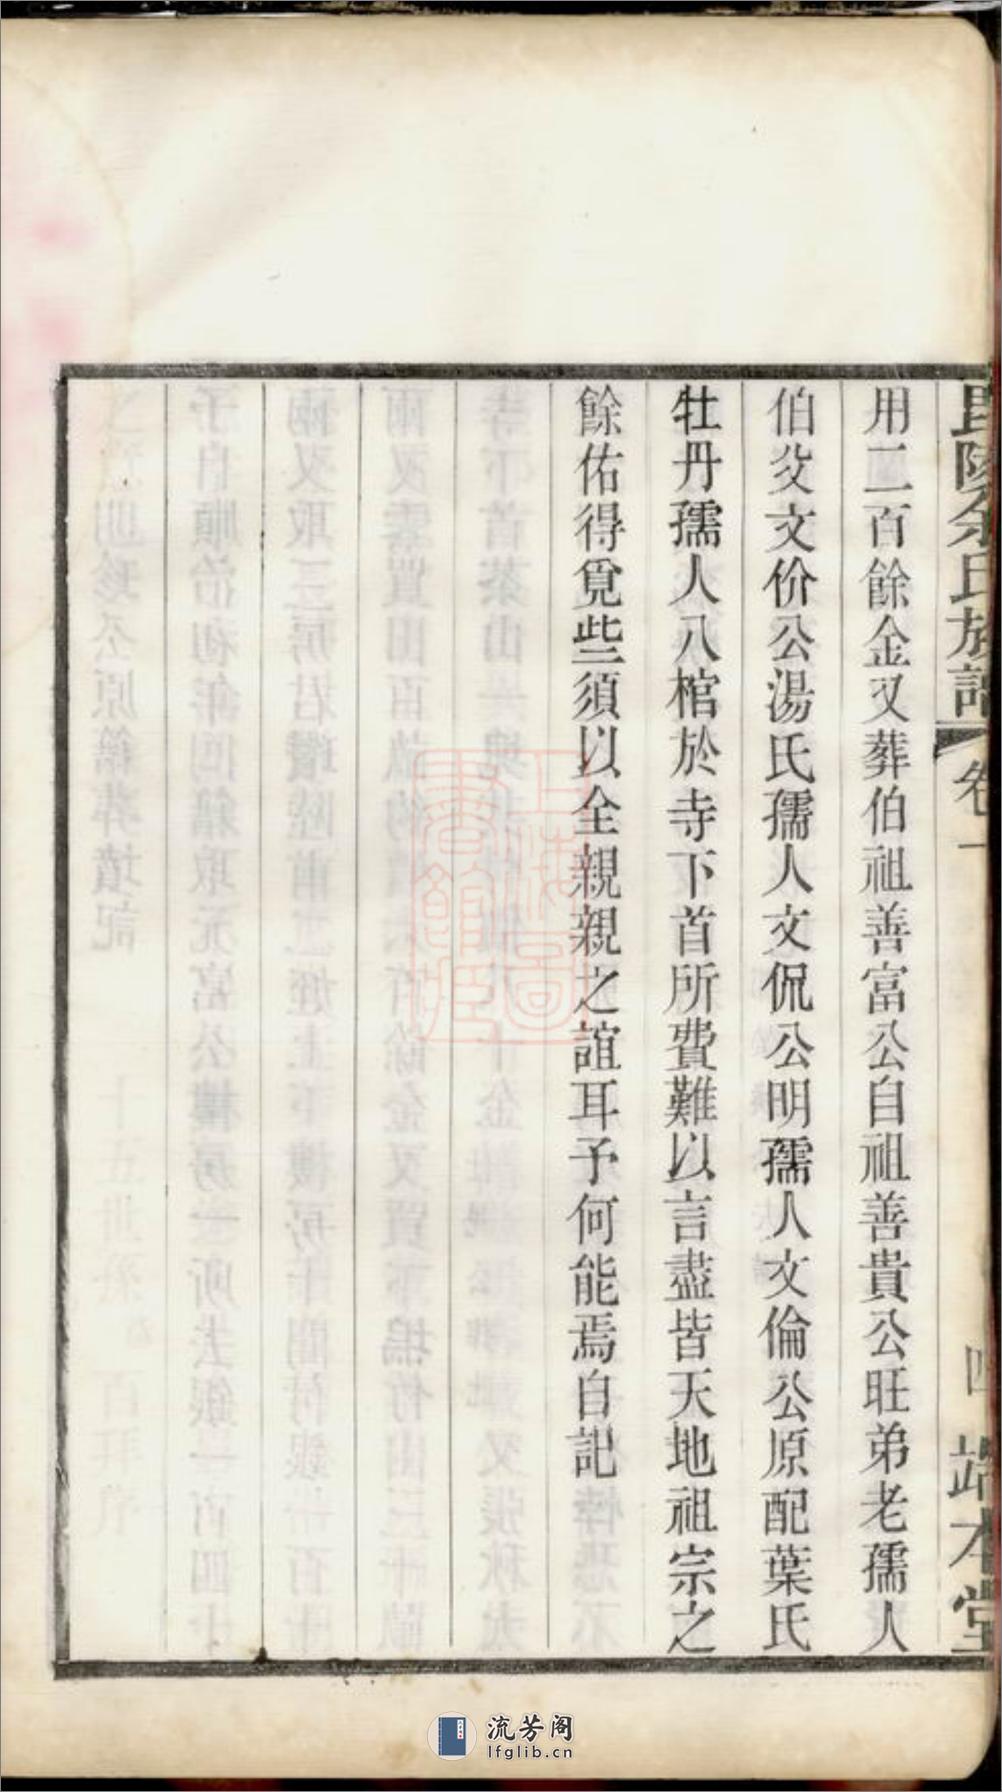 毘陵余氏族譜 卷一 四 端本堂
用二百餘金又葬伯祖善富公自祖善貴公旺弟老孺人
伯父文价公湯氏孺人文侃公明孺人文倫公原配葉氏
牡丹孺人八棺於寺下首所費難以言盡皆天地祖宗之
餘佑得覓些須以全親親之誼耳予何能焉自記
上海圖書館藏
流芳阁
lfglib.cn